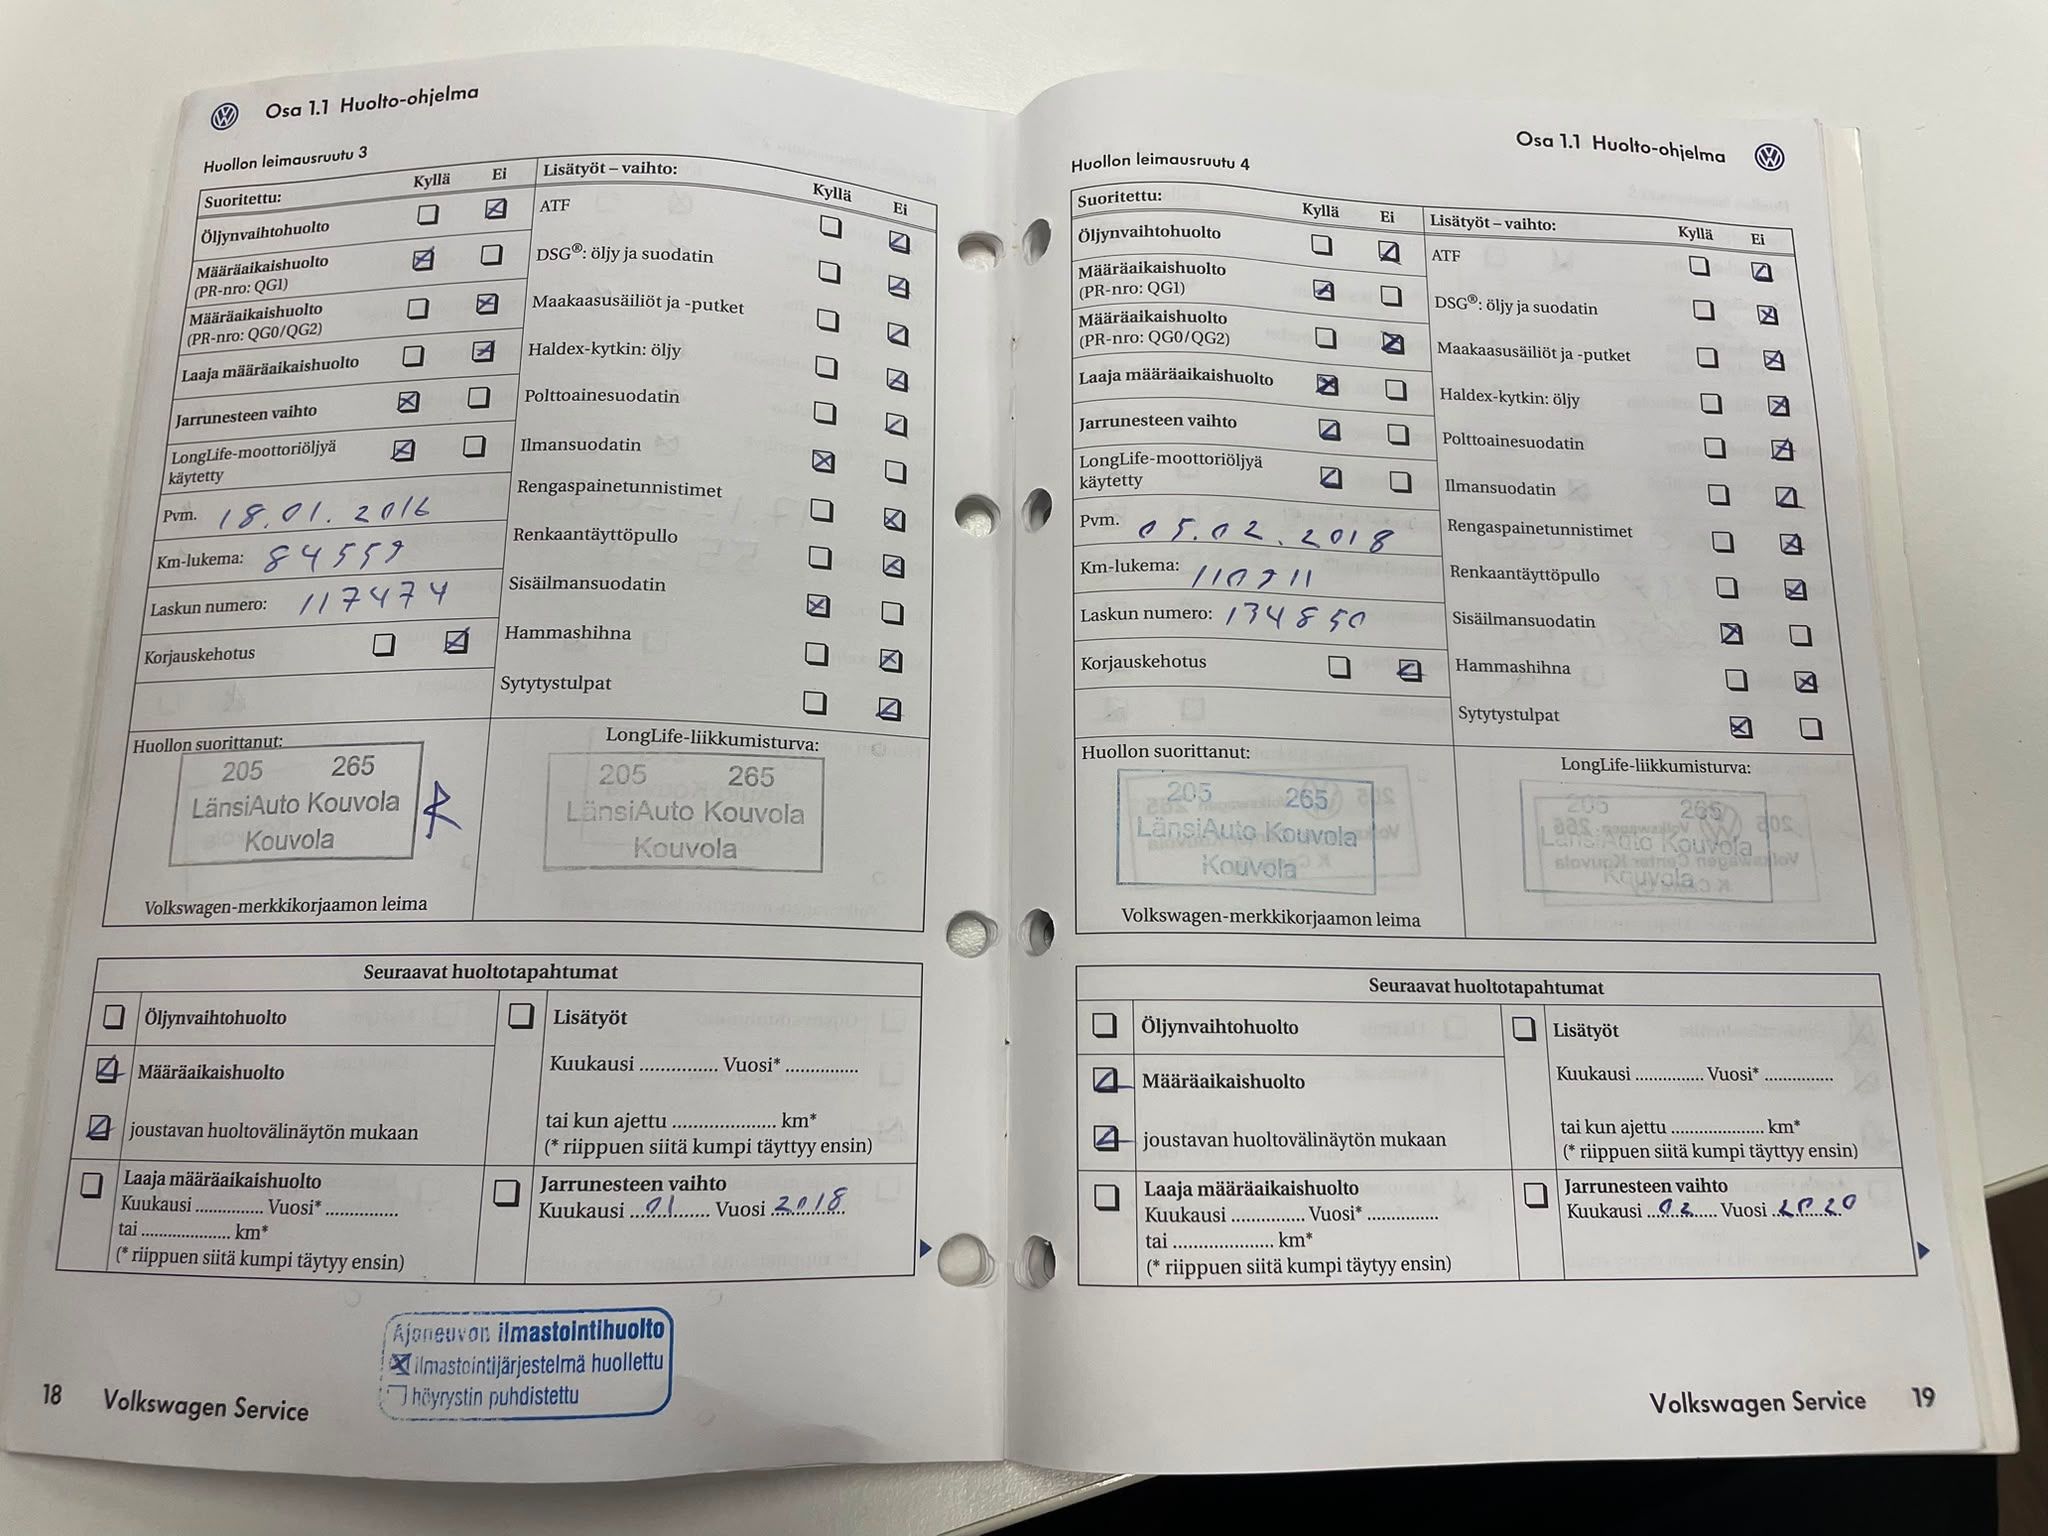 Osa 1.1 Huolto-ohjelma
Huollon leimausruutu 3
Suoritettu: Kyllä Ei
Öljynvaihtohuolto
Määräaikaishuolto
(PR-nro: QG1)
Määräaikaishuolto
(PR-nro: QG0/QG2)
Laaja määräaikaishuolto
Jarrunesteen vaihto
LongLife-moottoriöljyä
käytetty
Pvm. 18.01.2016
Km-lukema: 84559
Laskun numero: 117474
Korjauskehotus
Lisätyöt – vaihto: Kyllä Ei
ATF
DSG®: öljy ja suodatin
Maakaasusäiliöt ja -putket
Haldex-kytkin: öljy
Polttoainesuodatin
Ilmansuodatin
Rengaspainetunnistimet
Renkaantäyttöpullo
Sisäilmansuodatin
Hammashihna
Sytytystulpat
Huollon suorittanut:
205 265
LänsiAuto Kouvola
Kouvola
R
Volkswagen-merkkikorjaamon leima
LongLife-liikkumisturva:
205 265
LänsiAuto Kouvola
Kouvola
Seuraavat huoltotapahtumat
Öljynvaihtohuolto
Määräaikaishuolto
joustavan huoltovälinäytön mukaan
Lisätyöt
Kuukausi ............... Vuosi* ..............
tai kun ajettu .................... km*
(* riippuen siitä kumpi täyttyy ensin)
Laaja määräaikaishuolto
Kuukausi .............. Vuosi* ...............
tai ..................... km*
(* riippuen siitä kumpi täytyy ensin)
Jarrunesteen vaihto
Kuukausi 01 Vuosi 2018
Ajoneuvon ilmastointihuolto
ilmastointijärjestelmä huollettu
höyrystin puhdistettu
18 Volkswagen Service
Osa 1.1 Huolto-ohjelma
Huollon leimausruutu 4
Suoritettu: Kyllä Ei
Öljynvaihtohuolto
Määräaikaishuolto
(PR-nro: QG1)
Määräaikaishuolto
(PR-nro: QG0/QG2)
Laaja määräaikaishuolto
Jarrunesteen vaihto
LongLife-moottoriöljyä
käytetty
Pvm. 05.02.2018
Km-lukema:
Laskun numero: 134850
Korjauskehotus
Lisätyöt – vaihto: Kyllä Ei
ATF
DSG®: öljy ja suodatin
Maakaasusäiliöt ja -putket
Haldex-kytkin: öljy
Polttoainesuodatin
Ilmansuodatin
Rengaspainetunnistimet
Renkaantäyttöpullo
Sisäilmansuodatin
Hammashihna
Sytytystulpat
Huollon suorittanut:
205 265
LänsiAuto Kouvola
Kouvola
Volkswagen-merkkikorjaamon leima
LongLife-liikkumisturva:
205 265
LänsiAuto Kouvola
Kouvola
Seuraavat huoltotapahtumat
Öljynvaihtohuolto
Määräaikaishuolto
joustavan huoltovälinäytön mukaan
Lisätyöt
Kuukausi ............. Vuosi* ...............
tai kun ajettu .................... km*
(* riippuen siitä kumpi täyttyy ensin)
Laaja määräaikaishuolto
Kuukausi ............... Vuosi* ..............
tai ...................... km*
(* riippuen siitä kumpi täytyy ensin)
Jarrunesteen vaihto
Kuukausi 02 Vuosi 2020
Volkswagen Service 19